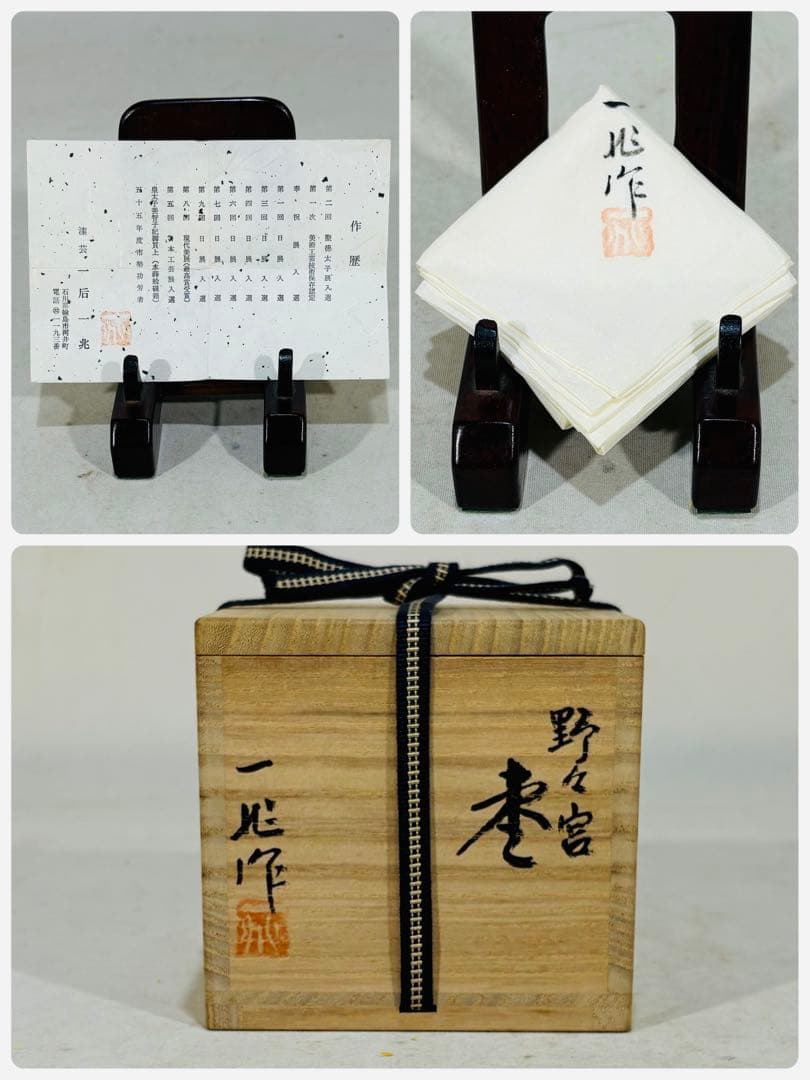 作歴
第二回 聖徳太子展入選
第一次 美術工芸技術保存認定
奉祝展入選
第一回日展入選
第三回日展入選
第四回日展入選
第六回日展入選
第七回日展入選
第九回日展入選
第八回 現代美展(最高賞受賞)
第五回日本工芸展入選
皇太子美智子妃御買上
五十五年度市勢功労者
漆芸 一后一兆
石川県輪島市河井町
電話 一一九三番
一兆作
野々宮
棗
一兆作